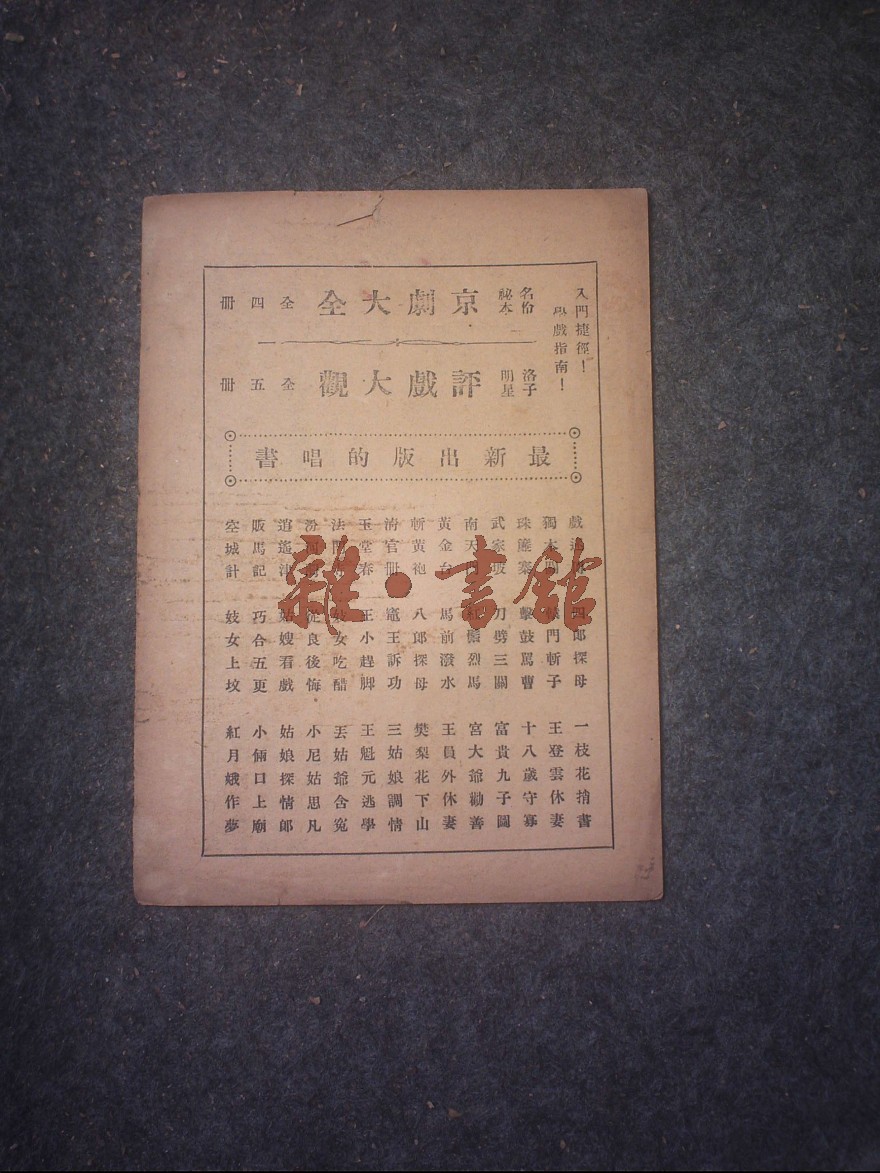 入門捷徑!
學戲指南!
名伶
祕本
京劇大全
全四冊
洛子
明星
評戲大觀
全五冊
最新出版的唱書
戲迷
獨木關
珠簾寨
武家坡
南天門
黃金台
斬黃袍
清官冊
玉堂春
法門
汾河灣
逍遙津
販馬記
空城計
四郎探母
轅門斬子
擊鼓罵曹
刀劈三關
紅鬃烈馬
馬前潑水
八郎探母
竈王訴功
王小趕脚
妓女吃醋
從良後悔
姑嫂看戲
巧合五更
妓女上坟
一枝花捎書
王登雲休妻
十八歲守寡
富貴九子圖
宮大爺勸善
王員外休妻
樊梨花下山
三姑娘調情
王魁元逃學
丟姑爺含冤
小尼姑思凡
姑娘探情郎
小倆口上廟
紅月娥作夢
雜·書館